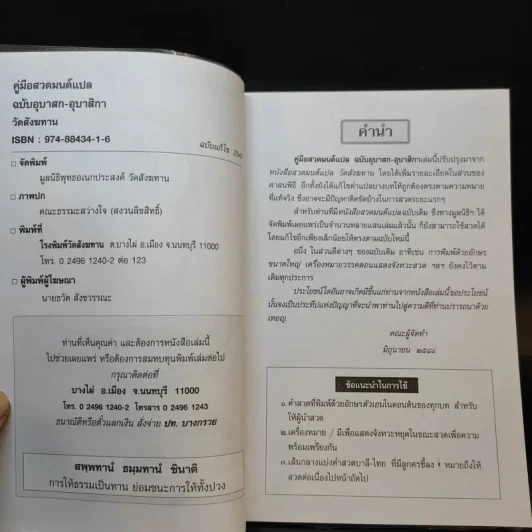 คู่มือสวดมนต์แปล
ฉบับอุบาสก-อุบาสิกา
วัดสังฆทาน
ISBN : 974-88434-1-6
ฉบับแก้ไข
จัดพิมพ์
มูลนิธิพุทธอเนกประสงค์ วัดสังฆทาน
ภาพปก
คณะธรรมะสว่างใจ (สงวนลิขสิทธิ์)
พิมพ์ที่
โรงพิมพ์วัดสังฆทาน ต.บางไผ่ อ.เมือง จ.นนทบุรี 11000
โทร. 0 2496 1240-2 ต่อ 123
ผู้พิมพ์ผู้โฆษณา
นายธวัต สังขวรรณะ
ท่านที่เห็นคุณค่า และต้องการหนังสือเล่มนี้
ไปช่วยเผยแพร่ หรือต้องการสมทบทุนพิมพ์เล่มต่อไป
กรุณาติดต่อที่
บางไผ่ อ.เมือง จ.นนทบุรี 11000
โทร. 0 2496 1240-2 โทรสาร 0 2496 1243
ธนาณัติหรือตั๋วแลกเงิน สั่งจ่าย ปท. บางกรวย
สพฺพทานํ ธมฺมทานํ ชินาติ
การให้ธรรมเป็นทาน ย่อมชนะการให้ทั้งปวง
คำนำ
คู่มือสวดมนต์แปล ฉบับอุบาสก-อุบาสิกาเล่มนี้ปรับปรุงมาจาก
หนังสือสวดมนต์แปล วัดสังฆทาน โดยได้เพิ่มรายละเอียดในส่วนของ
ศาสนพิธี อีกทั้งยังได้แก้ไขคำแปลบางบทให้ถูกต้องตรงตามความหมาย
ที่แท้จริง ซึ่งอาจจะมีปัญหาติดขัดบ้างในการสวดระยะแรกๆ
สำหรับท่านที่มีหนังสือสวดมนต์แปลฉบับเดิม ซึ่งทางมูลนิธิฯ ได้
จัดพิมพ์เผยแพร่เป็นจำนวนหลายแสนเล่มแล้วนั้น ก็ยังสามารถใช้สวดได้
โดยแก้ไขอีกเพียงเล็กน้อยให้ตรงตามฉบับใหม่นี้
อนึ่ง ในส่วนดีต่างๆ ของฉบับเดิม อาทิเช่น การพิมพ์ด้วยอักษร
ขนาดใหญ่ เครื่องหมายวรรคตอนแสดงจังหวะสวด ฯลฯ ยังคงไว้ตาม
เดิมทุกประการ
ประโยชน์ใดอันอาจเกิดมีขึ้นแก่ท่านจากหนังสือเล่มนี้ขอประโยชน์
นั้นจงเป็นประทีปแห่งปัญญาที่จะนำพาท่านไปสู่ความดีที่ท่านปรารถนาด้วย
เทอญ.
คณะผู้จัดทำ
มิถุนายน ๒๕๔๘
ข้อแนะนำในการใช้
๑.คำสวดที่พิมพ์ด้วยอักษรตัวเอนในตอนต้นของทุกบท สำหรับ
ให้ผู้นำสวด
๒.เครื่องหมาย / มีเพื่อแสดงจังหวะหยุดในขณะสวดเพื่อความ
พร้อมเพรียงกัน
๓.เส้นกลางแบ่งคำสวดบาลี-ไทย ที่มีลูกศรชี้ลง หมายถึงให้
สวดต่อเนื่องไปหน้าถัดไป